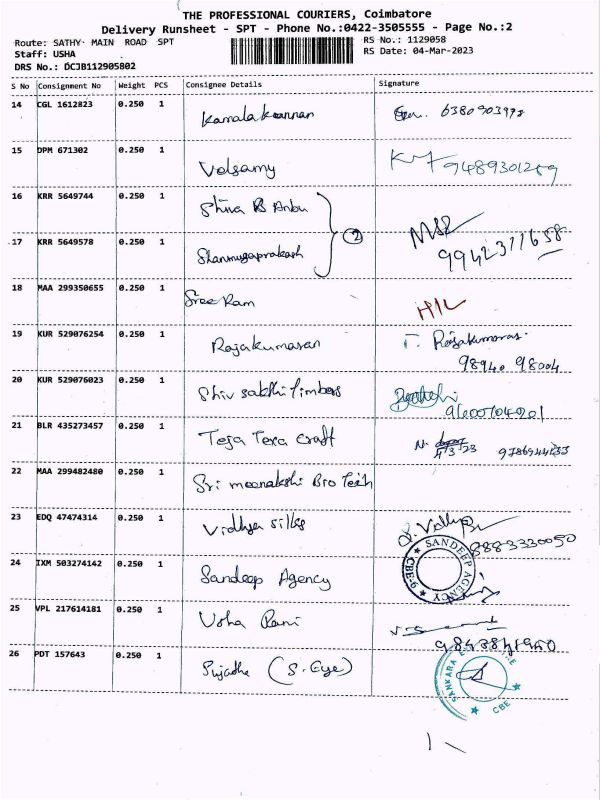 THE PROFESSIONAL COURIERS, Coimbatore
Delivery Runsheet - SPT - Phone No.:0422-3505555 - Page No.:2
Route: SATHY MAIN ROAD SPT
RS No.: 1129058
Staff: USHA
RS Date: 04-Mar-2023
DRS No.: DCJB112905802
S No Consignment No Weight PCS Consignee Details Signature
14 CGL 1612823 0.250 1 Kamalakannan 6380903978
15 DPM 671302 0.250 1 Velsamy 9489301259
16 KRR 5649744 0.250 1 Shiva B Anbu
17 KRR 5649578 0.250 1 Shanmugaprakash 2 9942311658
18 MAA 299350655 0.250 1 Sree Ram
19 KUR 529076254 0.250 1 Rajakumaran T. Rajakumaran
98940 98004
20 KUR 529076023 0.250 1 Shiv sakthi Timbers
21 BLR 435273457 0.250 1 Teja Texa craft N. 4/3/23
22 MAA 299482480 0.250 1 Sri meenakshi Bio Tech
23 EDQ 47474314 0.250 1 Vidhya silks 8883330050
24 IXM 503274142 0.250 1 Sandeep Agency SANDEEP AGENCY CBE-9
25 VPL 217614181 0.250 1 Usha Rani
26 PDT 157643 0.250 1 Sujatha (S. Eye) SANKARA CBE